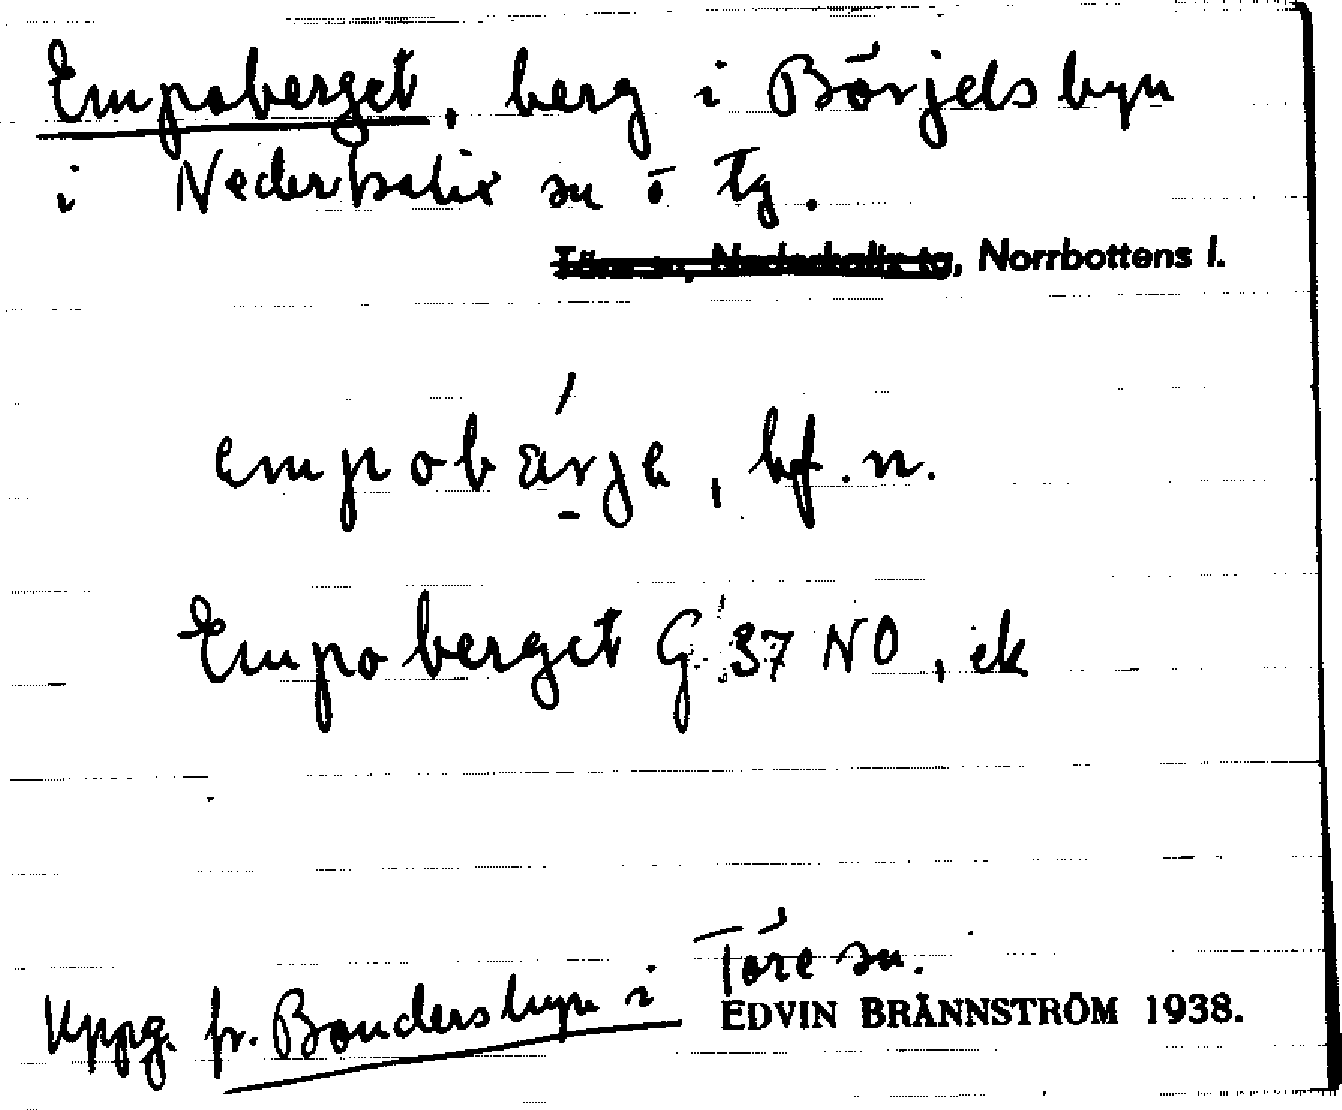 Empoberget, berg i Börjelsbyn
i Nederkalix sn o tg.
Töre sn, Nederkalix tg, Norrbottens l.
empobärje, bf. n.
Empoberget G 37 NO, ek
Uppg. fr. Bondersbyn i Töre sn.
EDVIN BRÄNNSTRÖM 1938.